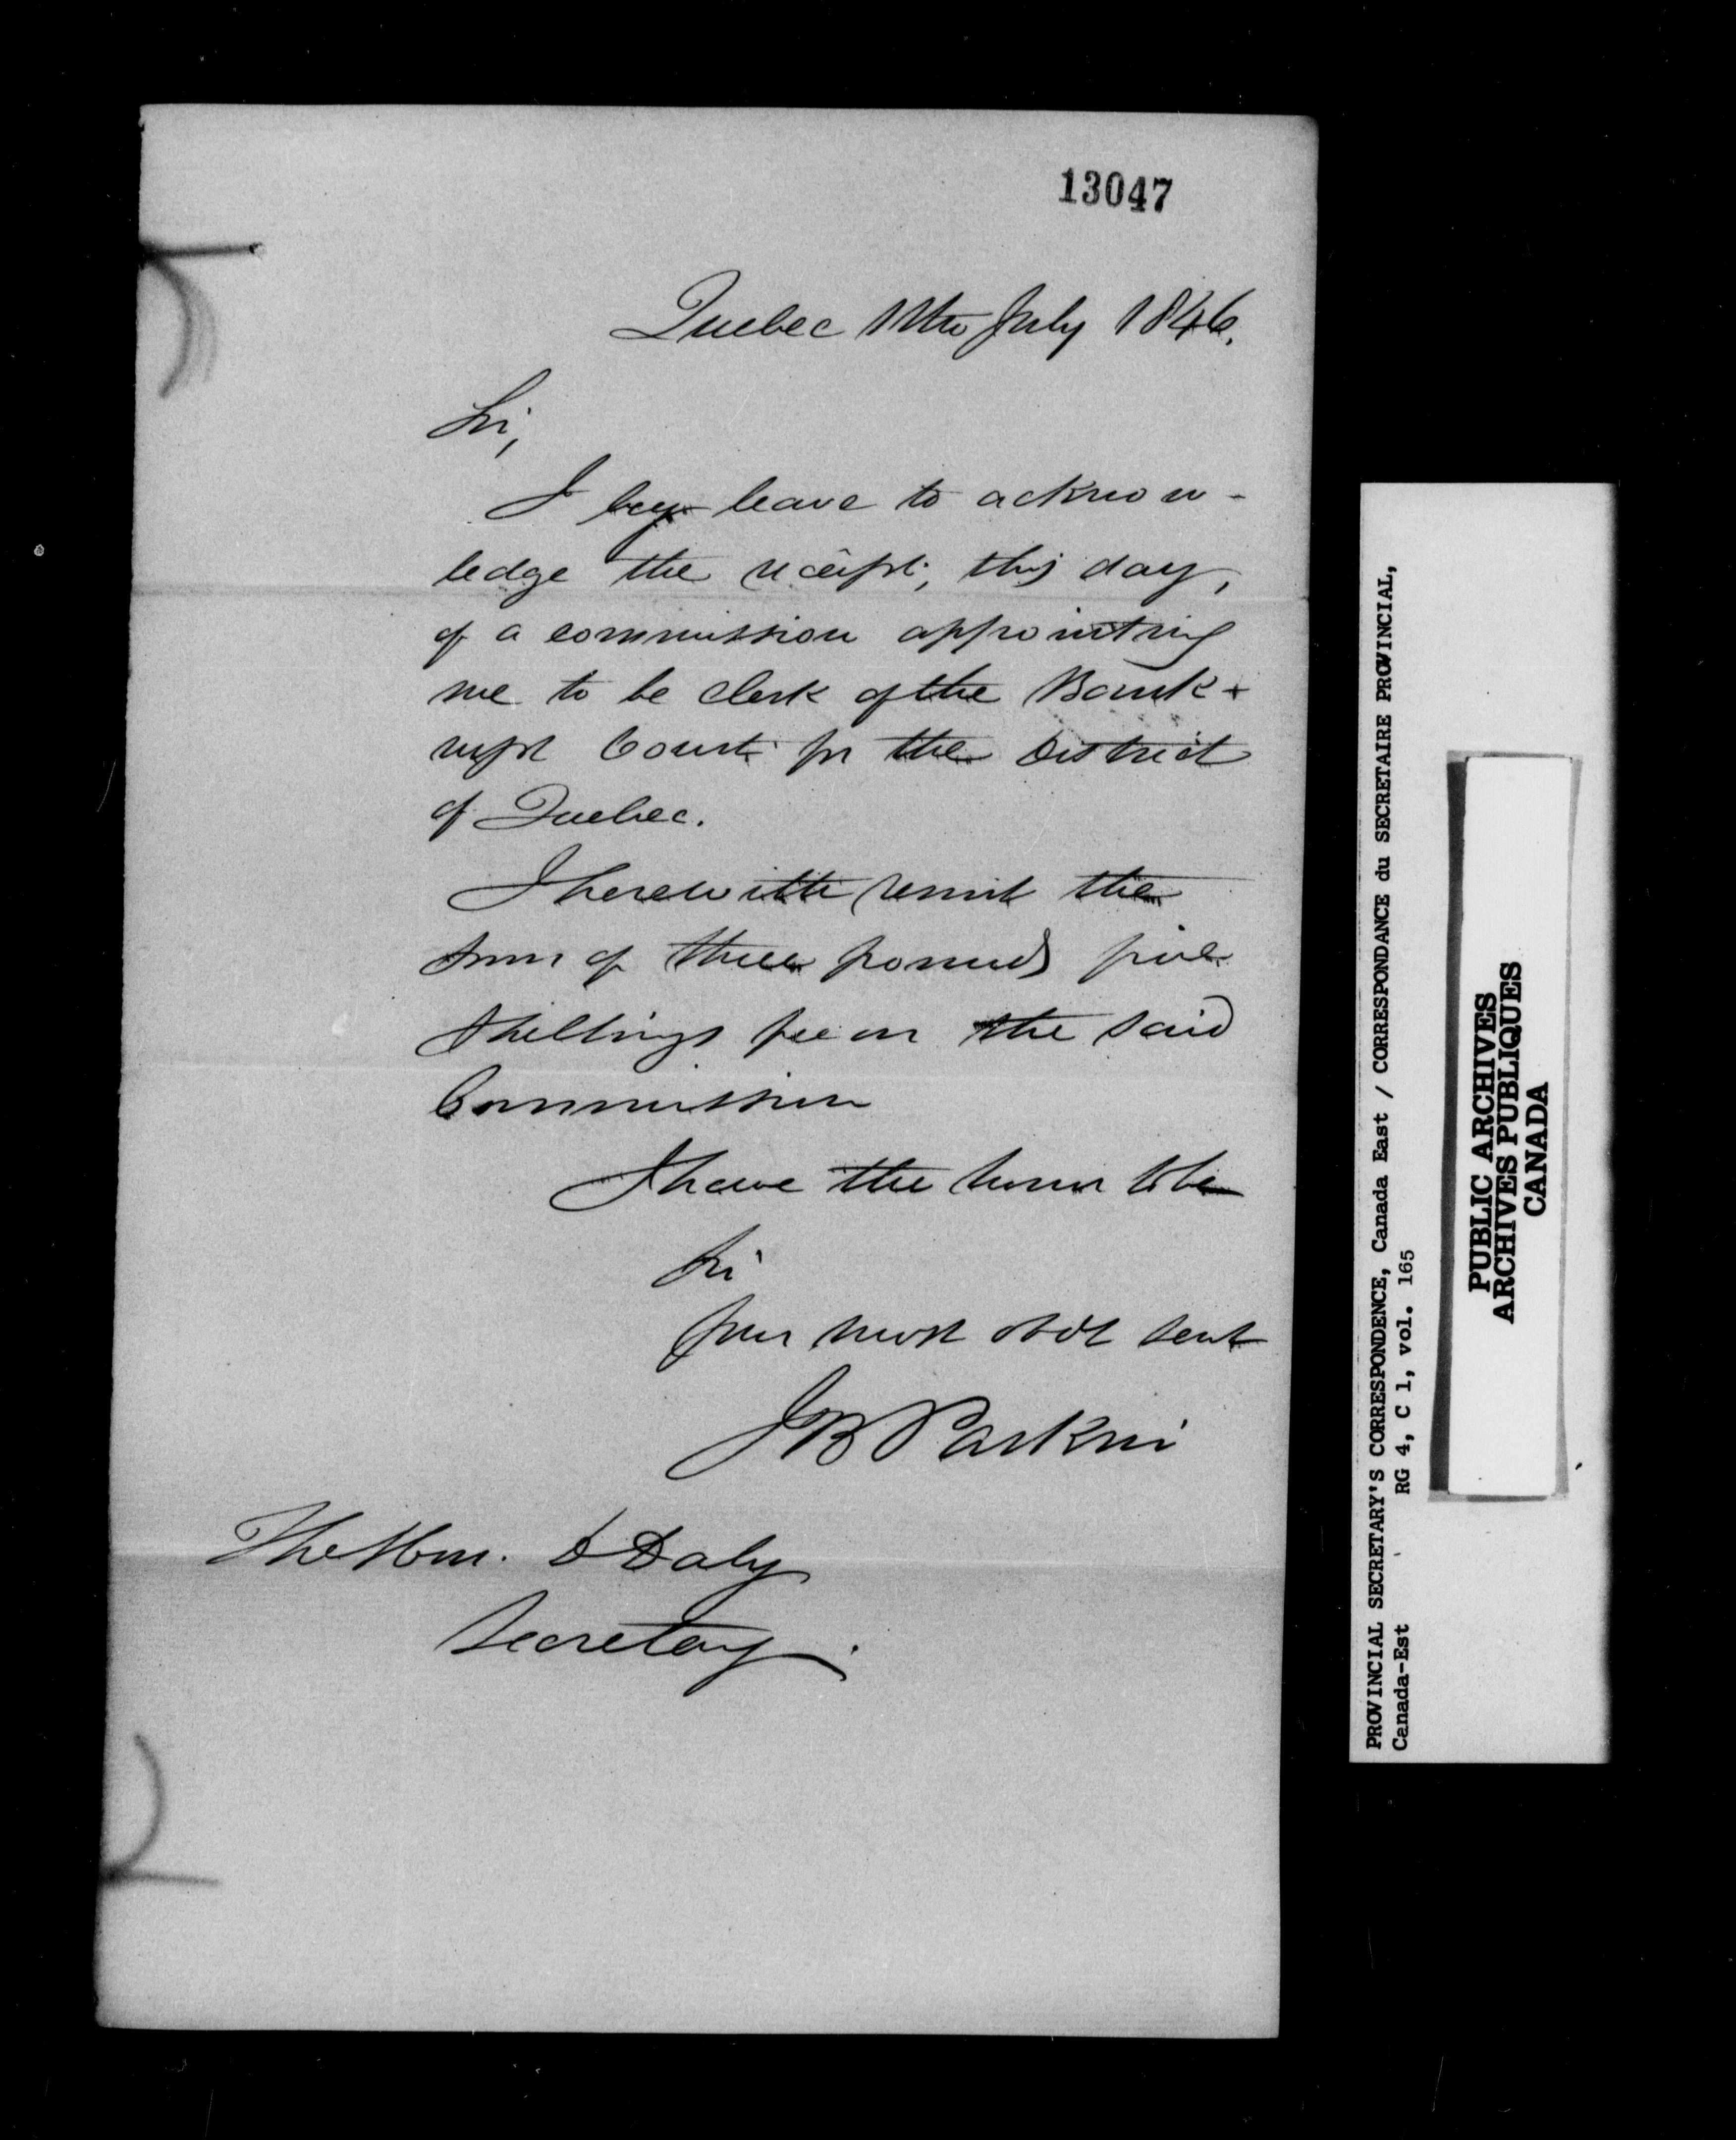 13047
Quebec 11th July 1846.
Sir,
I beg leave to acknow-
ledge the receipt, this day,
of a commission appointing
me to be clerk of the Bank-
rupt Court for the District
of Quebec.
I herewith remit the
sum of three pounds five
shillings fee on the said
Commission
I have the honor to be
Sir
your most obdt servt
J B Parkin
The Hon. D Daly
Secretary.
PROVINCIAL SECRETARY'S CORRESPONDENCE, Canada East / CORRESPONDANCE du SECRETAIRE PROVINCIAL,
Canada-Est RG 4, C 1, vol. 165
PUBLIC ARCHIVES
ARCHIVES PUBLIQUES
CANADA